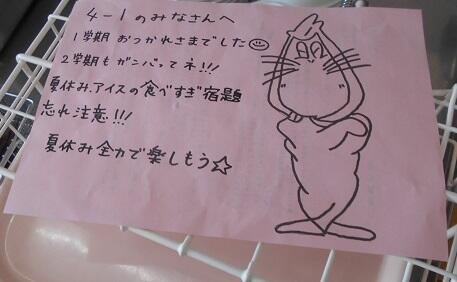 4-1のみなさんへ
1学期おつかれさまでした☺
2学期もガンバってネ!!!
夏休み、アイスの食べすぎ宿題
忘れ注意!!!
夏休み全力で楽しもう☆